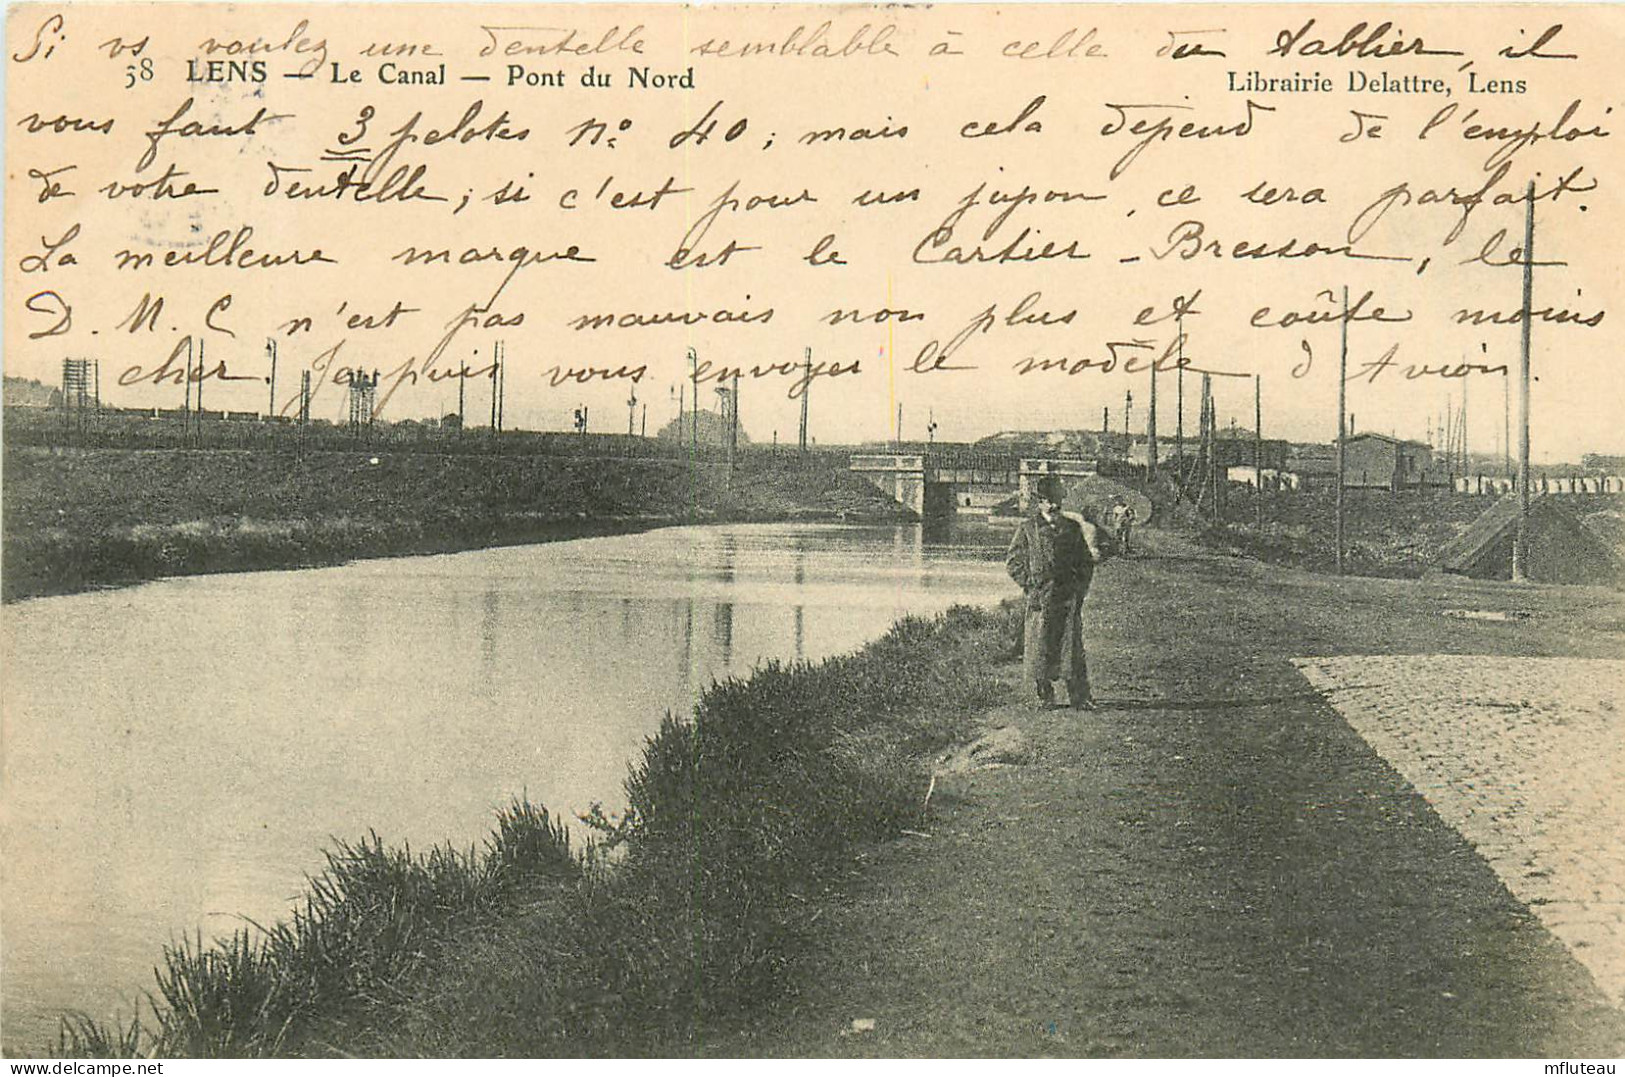 Si vs voulez une dentelle semblable à celle du tablier, il
38 LENS — Le Canal — Pont du Nord
Librairie Delattre, Lens
vous faut 3 pelotes no 40 ; mais cela dépend de l'emploi
de votre dentelle ; si c'est pour un jupon, ce sera parfait.
La meilleure marque est le Cartier-Bresson, le
D. M. C n'est pas mauvais non plus et coûte moins
cher. Je puis vous envoyer le modèle d'Avion.
mfluteau